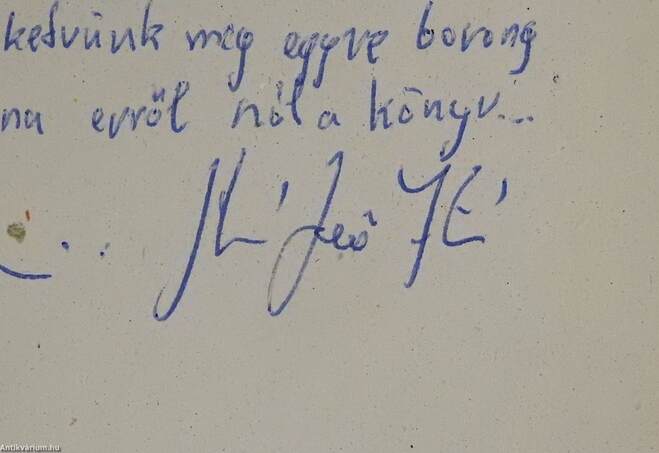 kedvünk meg egyre borong
na erről szól a könyv...
Jenő
Antikvárium.hu